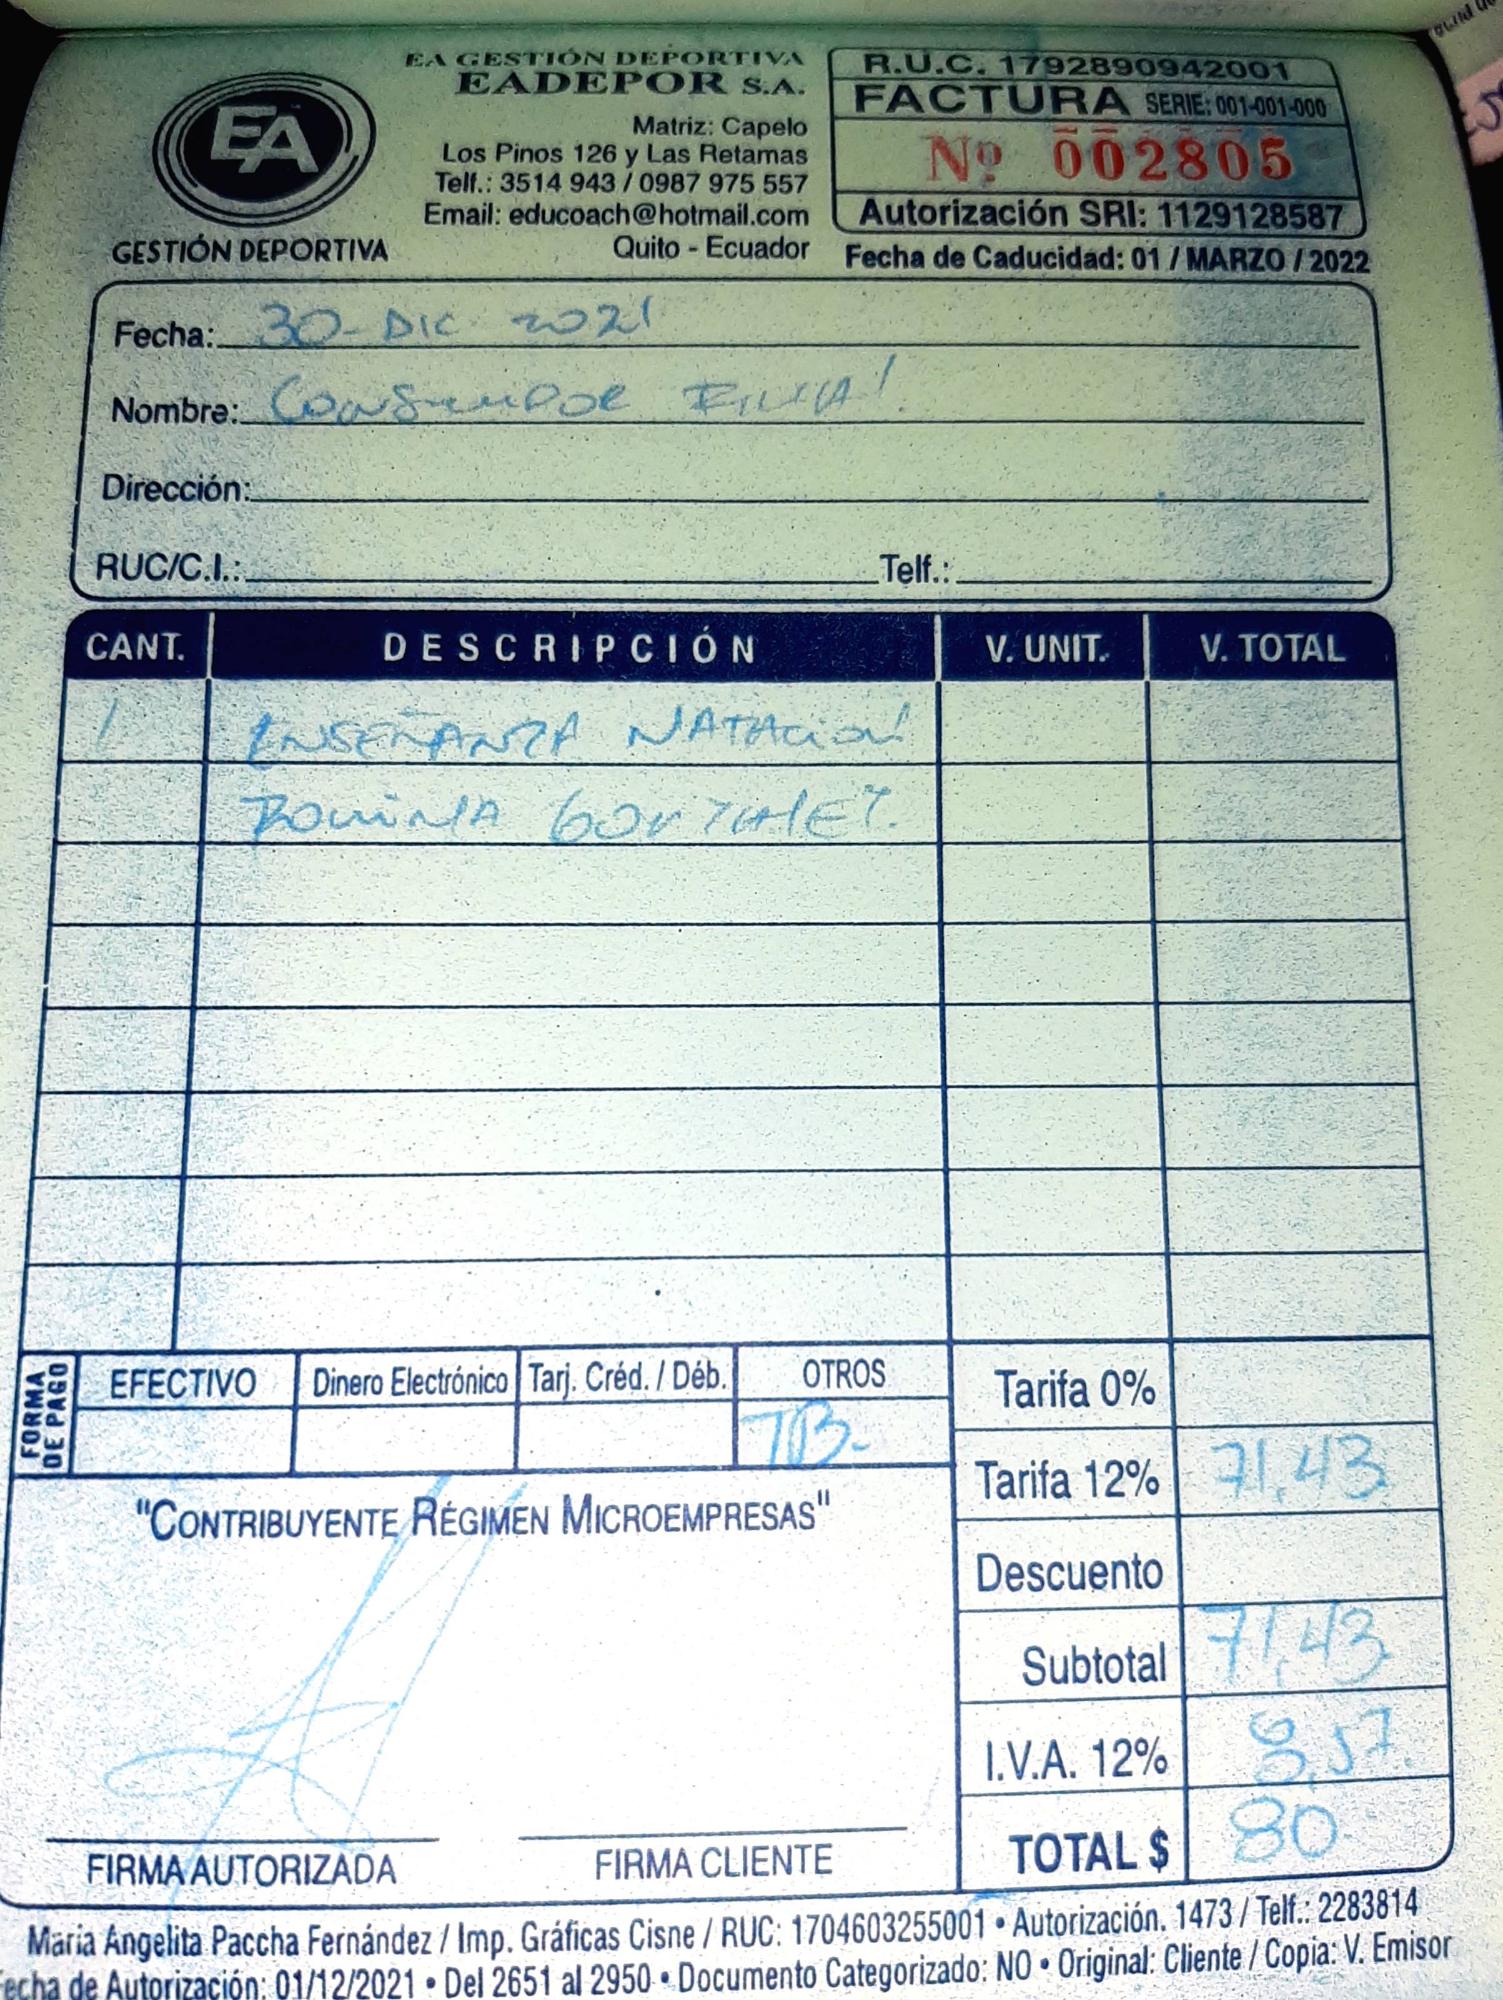 EA GESTIÓN DEPORTIVA
EADEPOR S.A.
EA
GESTIÓN DEPORTIVA
Matriz: Capelo
Los Pinos 126 y Las Retamas
Telf.: 3514 943 / 0987 975 557
Email: educoach@hotmail.com
Quito - Ecuador
R.U.C. 1792890942001
FACTURA SERIE: 001-001-000
Nº 002805
Autorización SRI: 1129128587
Fecha de Caducidad: 01 / MARZO / 2022
Fecha: 30-DIC 2021
Nombre: CONSUMIDOR FINAL
Dirección:
RUC/C.I.: Telf.:
CANT. DESCRIPCIÓN V. UNIT. V. TOTAL
1 ENSEÑANZA NATACION
FORMA DE PAGO
EFECTIVO Dinero Electrónico Tarj. Créd. / Déb. OTROS
TB.
Tarifa 0%
Tarifa 12% 71,43
Descuento
Subtotal 71,43
I.V.A. 12% 8,57
TOTAL $ 80
"CONTRIBUYENTE RÉGIMEN MICROEMPRESAS"
FIRMA AUTORIZADA FIRMA CLIENTE
Maria Angelita Paccha Fernández / Imp. Gráficas Cisne / RUC: 1704603255001 • Autorización. 1473 / Telf.: 2283814
echa de Autorización: 01/12/2021 • Del 2651 al 2950 • Documento Categorizado: NO • Original: Cliente / Copia: V. Emisor